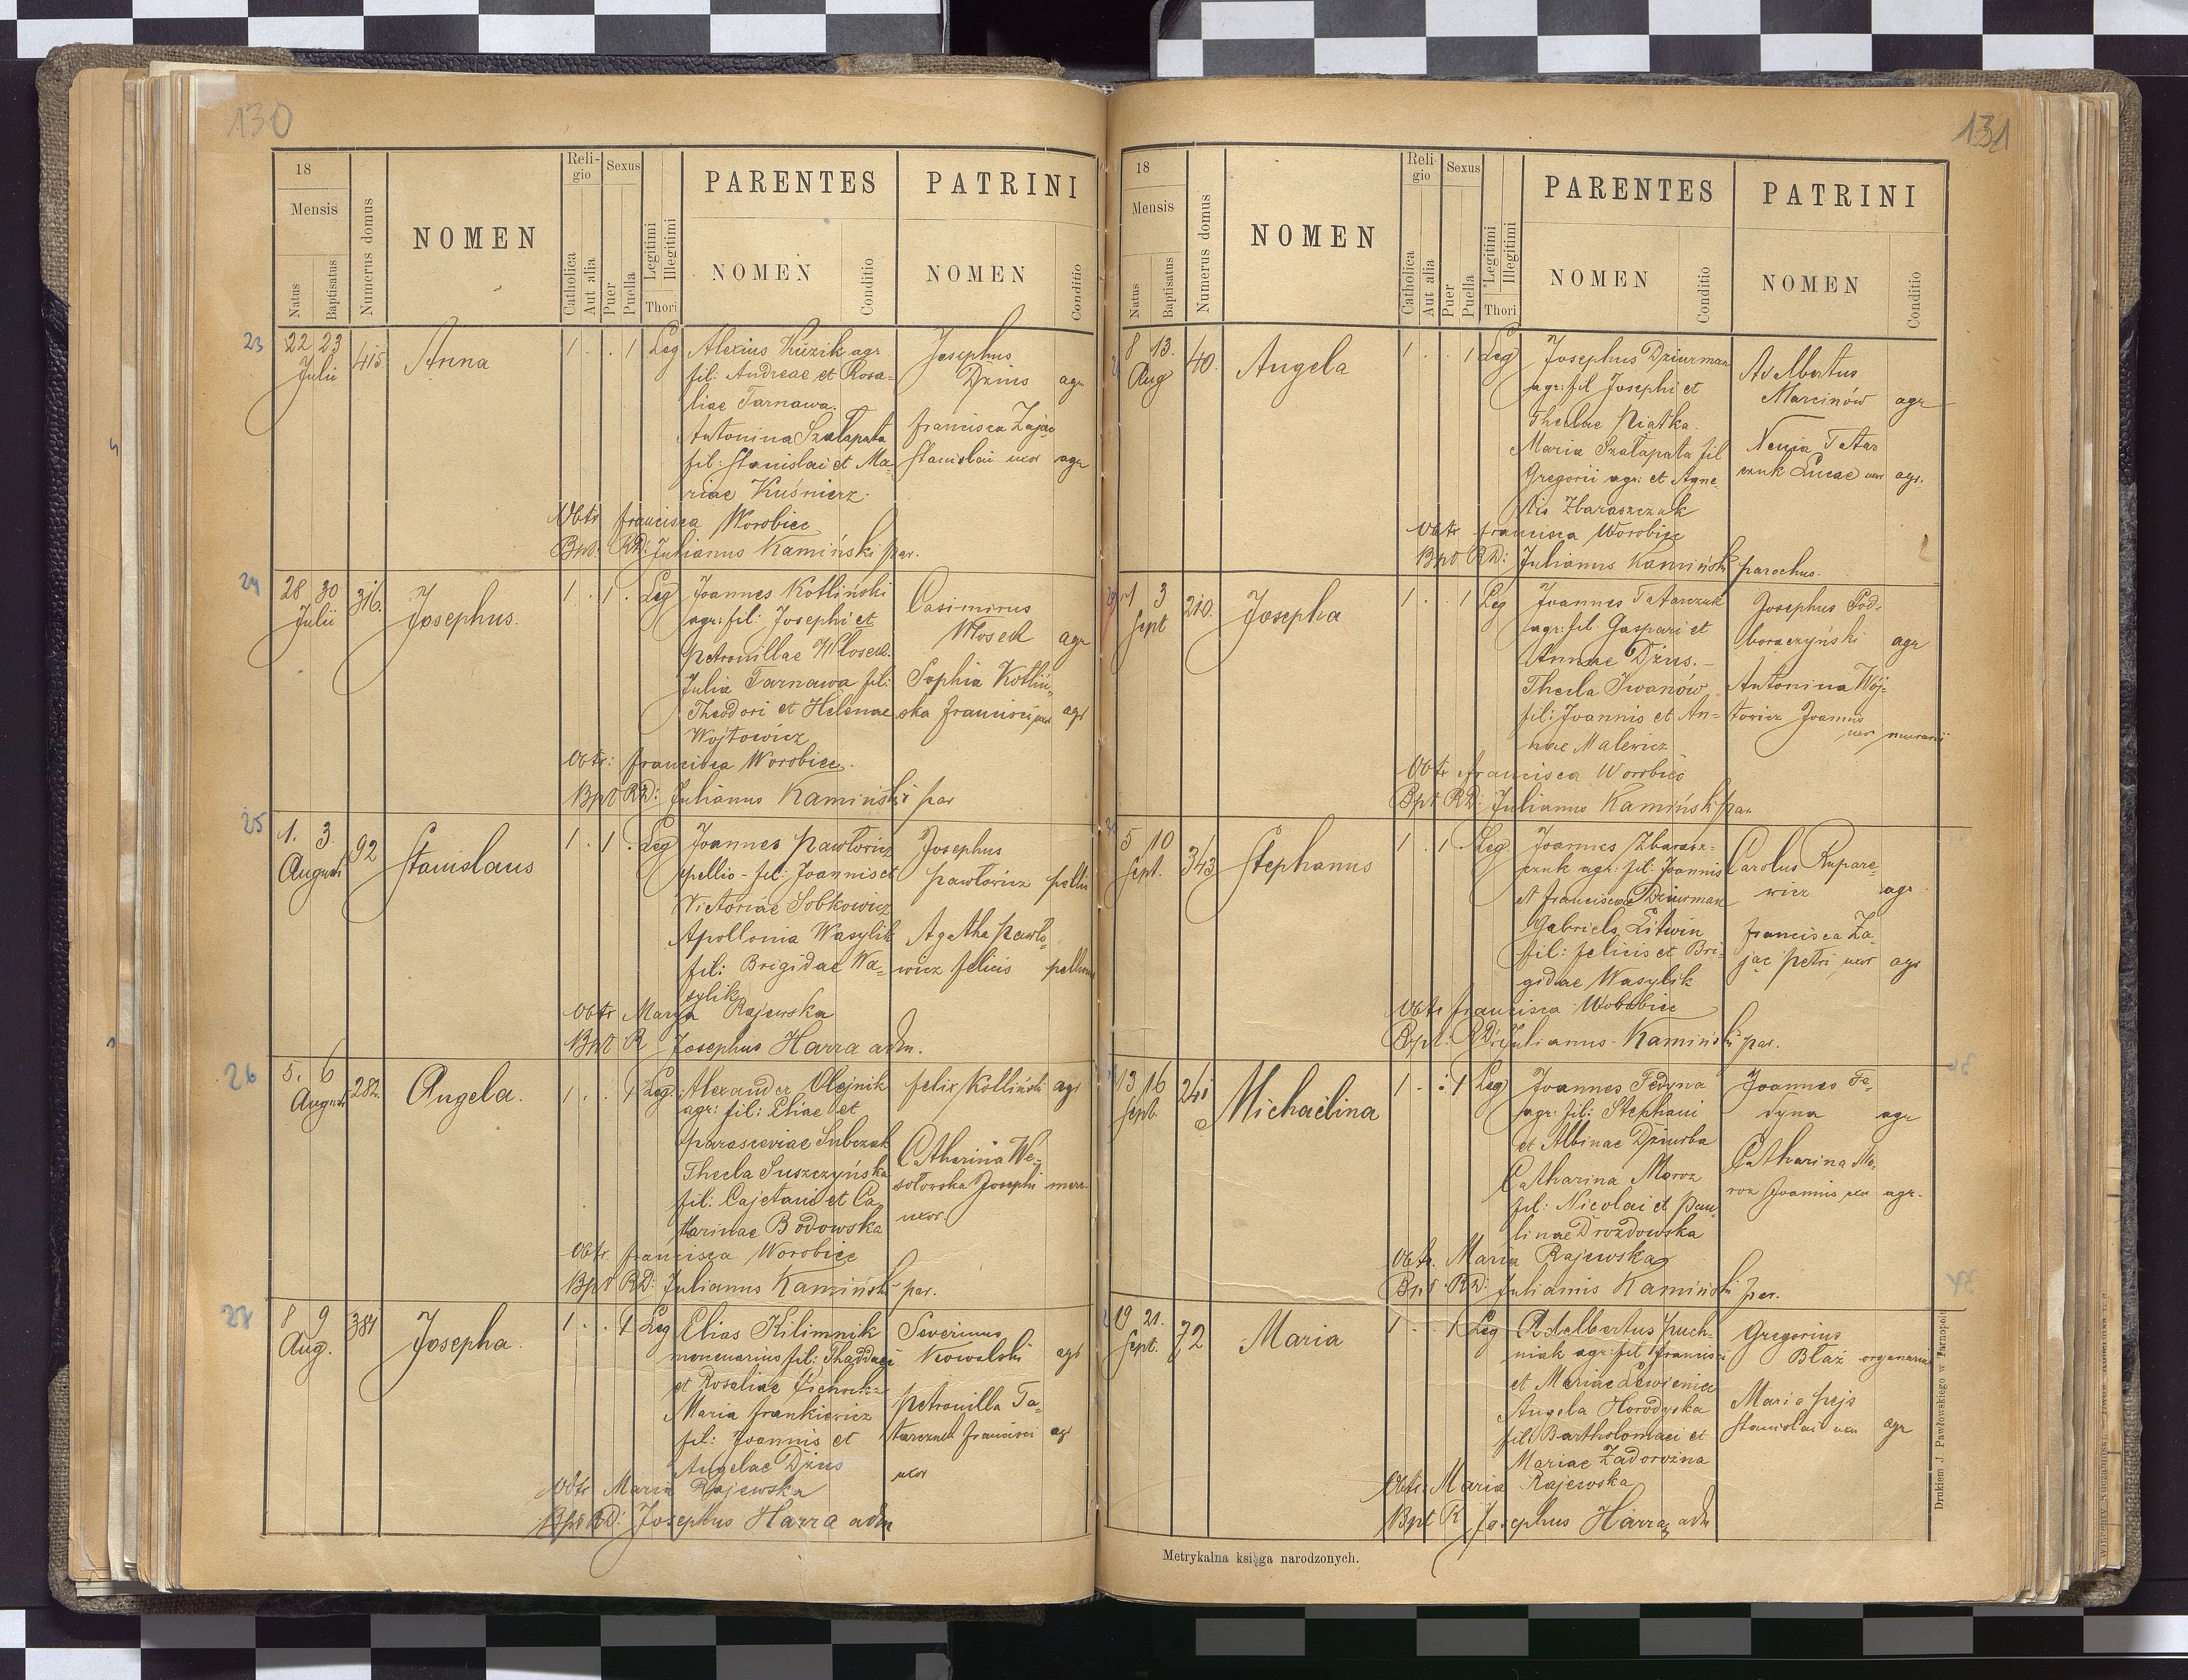 130
18
Mensis
Natus
Baptisatus
Numerus domus
NOMEN
Reli-
gio
Catholica
Aut alia
Sexus
Puer
Puella
Legitimi
Illegitimi
Thori
PARENTES
NOMEN
Conditio
PATRINI
NOMEN
Conditio
23
22 23
Julii
415
Anna
1 . . 1 Leg
Alexius Kuzik agr
fil: Andreae et Rosa-
liae Tarnawa.
Antonina Szałapata
fil: Stanislai et Ma-
riae Kuśnierz.
Josephus
Dzius agr
Francisca Zając
Stanislai uxor agr
Obtr Francisca Worobiec
Bpt RD: Julianus Kamiński par.
24
28 30
Julii
316.
Josephus.
1 . 1 . Leg
Joannes Kotliński
agr: fil: Josephi et
Petronillae Włosek.
Julia Tarnawa fil:
Theodori et Helenae
Wojtowicz
Casimirus
Włosek agr
Sophia Kotliń-
ska Francisci uxor agr
Obtr: Francisca Worobiec.
Bpt RD: Julianus Kamiński par
25
1. 3.
Augusti
92
Stanislaus
1 . 1 . Leg
Joannes Pawłowicz
pellio - fil: Joannis et
Victoriae Sobkowicz
Apollonia Wasylik
fil: Brigidae Wa-
sylik
Josephus
Pawłowicz pellio
Agatha Pawło-
wicz Felicis pellionis
Obtr Marya Rajewska
Bpt R Josephus Harra adm.
26
5. 6
Augusti
282.
Angela.
1 . . 1 Leg.
Alexander Olejnik
agr: fil: Eliae et
Parasceviae Subczak
Thecla Suszczyńska
fil: Cajetani et Ca-
tharinae Bodowska
Felix Kotliński agr
Catharina We-
sołowska Josephi merc.
uxor
Obtr. Francisca Worobiec
Bpt RD: Julianus Kamiński par.
27
8 9
Aug.
384
Josepha.
1 . . 1 Leg
Elias Kilimnik
mercenarius fil: Thaddaei
et Rosaliae
Maria Frankiewicz
fil: Joannis et
Angelae Dzius
Severinus
Kowalski agr
Petronilla Ta-
tarczuk Francisci agr
uxor
Obtr Maria Rajewska
Bpt RD: Josephus Harra adm
131
18
Mensis
Natus
Baptisatus
Numerus domus
NOMEN
Reli-
gio
Catholica
Aut alia
Sexus
Puer
Puella
Legitimi
Illegitimi
Thori
PARENTES
NOMEN
Conditio
PATRINI
NOMEN
Conditio
8 13.
Aug
40.
Angela
1 . . 1 Leg
Josephus Dziurman
agr: fil Josephi et
Theclae Piatka.
Maria Szałapata fil
Gregorii agr: et Agne-
tis Zbaraszczuk
Adalbertus
Marcinów agr
Tatar
czuk Lucae uxor agr.
Obtr Francisca Worobiec
Bpt RD: Julianus Kamiński parochus.
1 3
Sept
210.
Josepha
1 . . 1 Leg
Joannes Tatarczuk
agr: fil. Gaspari et
Annae Dzius. -
Thecla Iwanów
fil: Joannis et An-
nae Malewicz
Josephus Pod-
boraczyński agr
Antonina Wój-
towicz Joannis
uxor murarii
Obtr Francisca Worobiec
Bpt RD: Julianus Kamiński par
5 10
Sept.
343
Stephanus
1 . 1 . Leg.
Joannes Zbarasz-
czuk agr: fil: Joannis
et Franciscae Dziurman
Gabriela Litwin
fil: Felicis et Bri-
gidae Wasylik
Carolus Rupare-
wicz agr
Francisca Za-
jąc Petri uxor agr
Obtr Francisca Worobiec
Bpt: RD: Julianus Kamiński par.
13 16
Sept.
241
Michaëlina
1 - . 1 Leg
Joannes Fedyna
agr: fil: Stephani
et Albinae Dziurba
Catharina Moroz
fil: Nicolai et Pau-
linae Drozdowska
Joannes Fe-
dyna agr
Catharina Mo-
roz Joannis uxor agr.
Obtr. Maria Rajewska
Bpt. RD: Julianus Kamiński par.
19 21.
Sept.
72
Maria
1 . . 1 Leg
Adalbertus Puch-
niak agr: fil Francisci
et Mariae Lewienice
Angela Horodyska
fil: Bartholomaei et
Mariae Zadorożna
Gregorius
Błaż organarius
Maria Pejs
Stanislai uxor agr
Obtr: Maria Rajewska
Bpt R Josephus Harra adm
Metrykalna księga narodzonych.
Drukiem J. Pawłowskiego w Tarnopolu